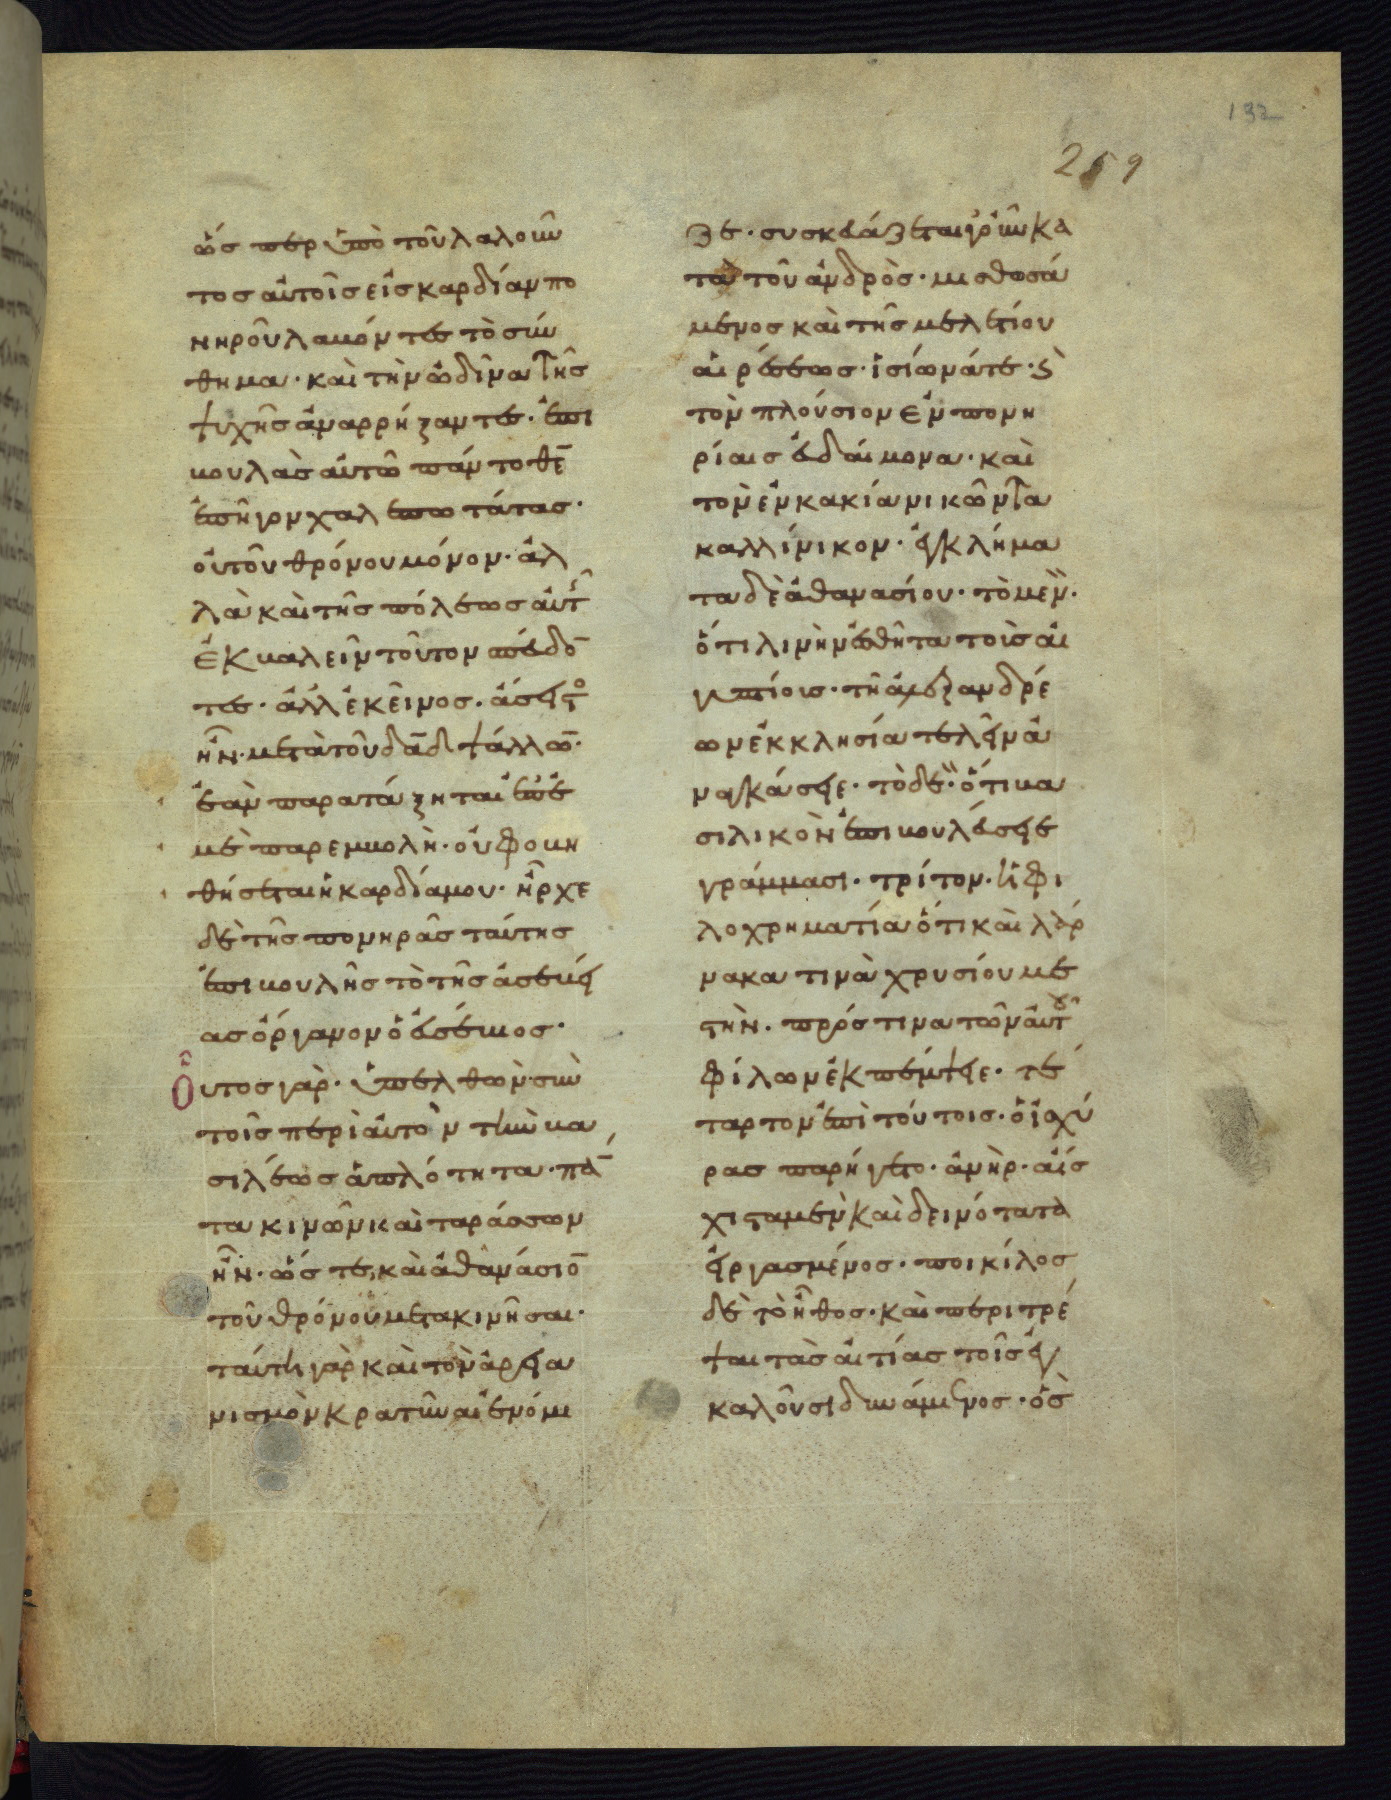 132
259
ὥσπερ ὑπὸ τοῦ λαλοῦν
τος αὐτοῖς εἰς καρδίαν πο
νηροῦ λαβόντες τὸ σύν
θημα· καὶ τὴν ὠδῖνα τῆς
ψυχῆς ἀναρρήξαντες· ἐπι
βουλὰς αὐτῶ παντοθε̄
ἐπῆγον χαλεπωτάτας·
οὐ τοῦ θρόνου μόνον· ἀλ
λὰ καὶ τῆς πόλεως αὐτῆς
ἐκβαλεῖν τοῦτον σπεύδο̄
τες· ἀλλ' ἐκεῖνος· ἄσειστο
ἦν· μετὰ τοῦ δᾱδ ψάλλω̄·
ἐὰν παρατάξηται ἐπ' ἐ
μὲ παρεμβολὴ· οὐ φοβη
θήσεται ἡ καρδία μου· ἦρχε
δὲ τῆς πονηρᾶς ταύτης
ἐπιβουλῆς τὸ τῆς ἀσεβεί
ας ὄργανον ὁ ἐυσέβιος·
Οὗτος γὰρ· ὑπελθὼν σὺν
τοῖς περὶ αὐτὸν τὴν βα
σιλέως ἁπλότητα· πά̄
τα κινῶν καὶ ταράσσων
ἦν· ὥστε, καὶ ἀθανάσιο̄
τοῦ θρόνου μετακινῆσαι·
ταύτη γὰρ καὶ τὸν ἀρεια
νισμὸν κρατῦναι ἐνόμι
ζε· συσκευάζεται γοῦν κα
τὰ τοῦ ἀνδρὸς· μισθωσά
μενος καὶ τῆς μελετίου
αἱρέσεως· ἰσίωνά τε· ϛ̀
τὸν πλούσιον ἐν πονη
ρίαις ἐυδαίμονα· καὶ
τὸν ἐν κακία νικῶντα
καλλίνικον· ἐγκλήμα
τα δὲ ἀθανασίου· τὸ μὲν·
ὅτι λινῆν ἐσθῆτα τοῖς αἰ
γυπτίοις· τῆ ἀλεξανδρέ
ων ἐκκλησία τελεῖν ἀ
ναγκάσειε· τὸ δὲ· ὅτι βα
σιλικὸν ἐπιβουλεύσειε
γράμμασι· τρίτον· ἡ φι
λοχρηματία ὅτι καὶ λάρ
νακά τινα χρυσίου με
στὴν· πρός τινα τῶν αὐτοῦ
φίλων ἐκπέμψειε· τέ
ταρτον ἐπὶ τούτοις· ὁ ἰσχύ
ρας παρήγετο· ἀνὴρ· αἴσ
χιστα μὲν καὶ δεινότατα
εἰργασμένος· ποικίλος
δὲ τὸ ἦθος· καὶ περιτρέ
ψαι τὰς αἰτίας τοῖς ἐγ
καλοῦσι δυνάμενος· ὃς